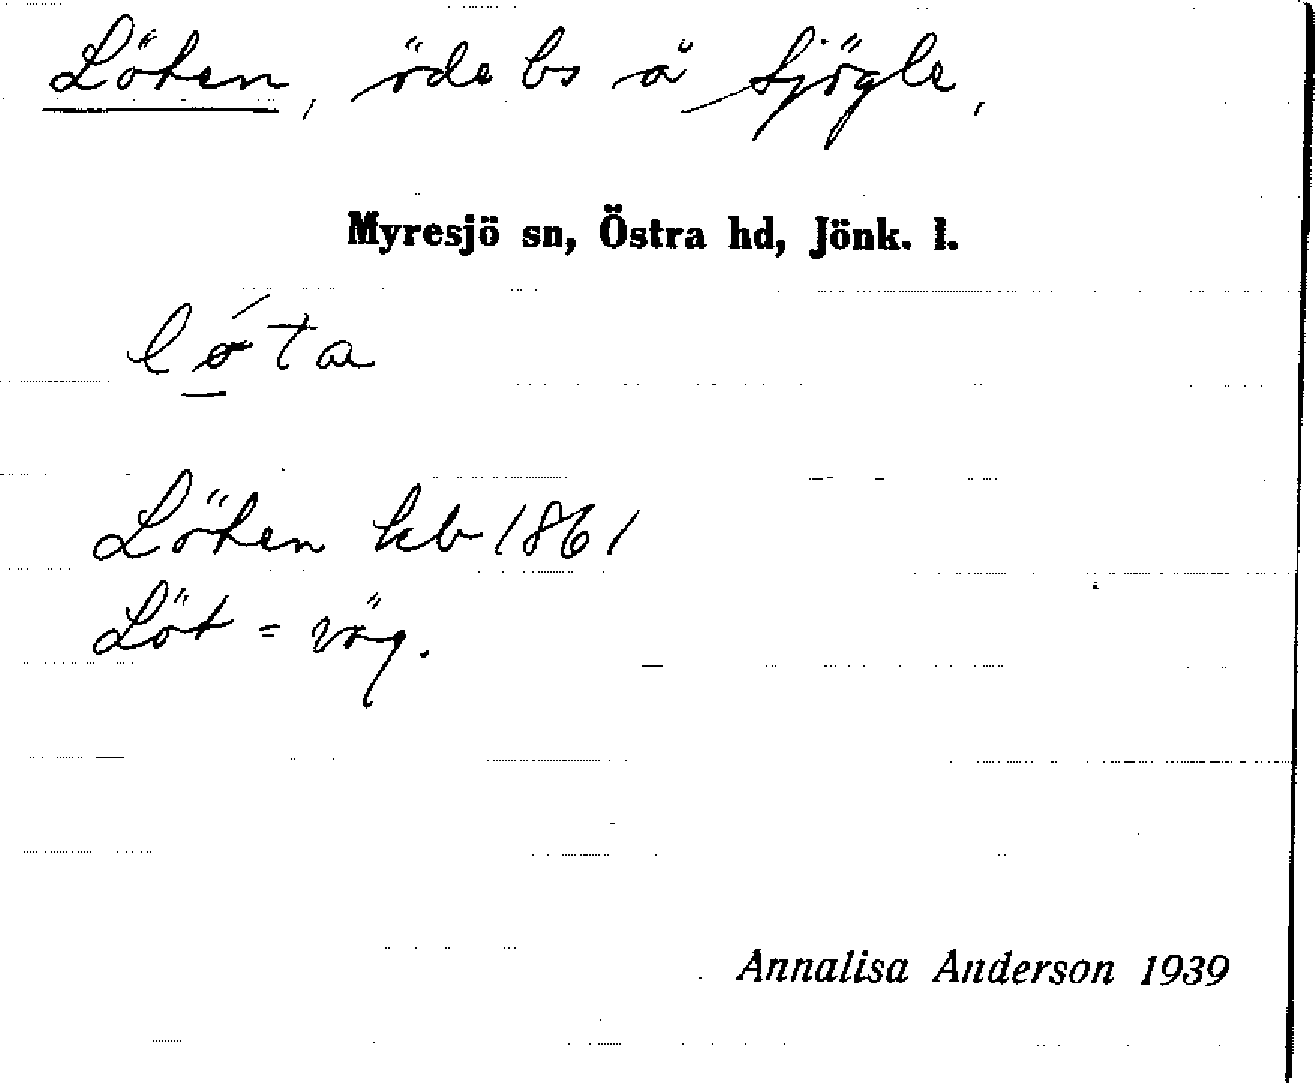 Löten, öde bs å Sjögle,
Myresjö sn, Östra hd, Jönk. l.
lǿta
Löten kb 1861
Löt = väg.
Annalisa Anderson 1939